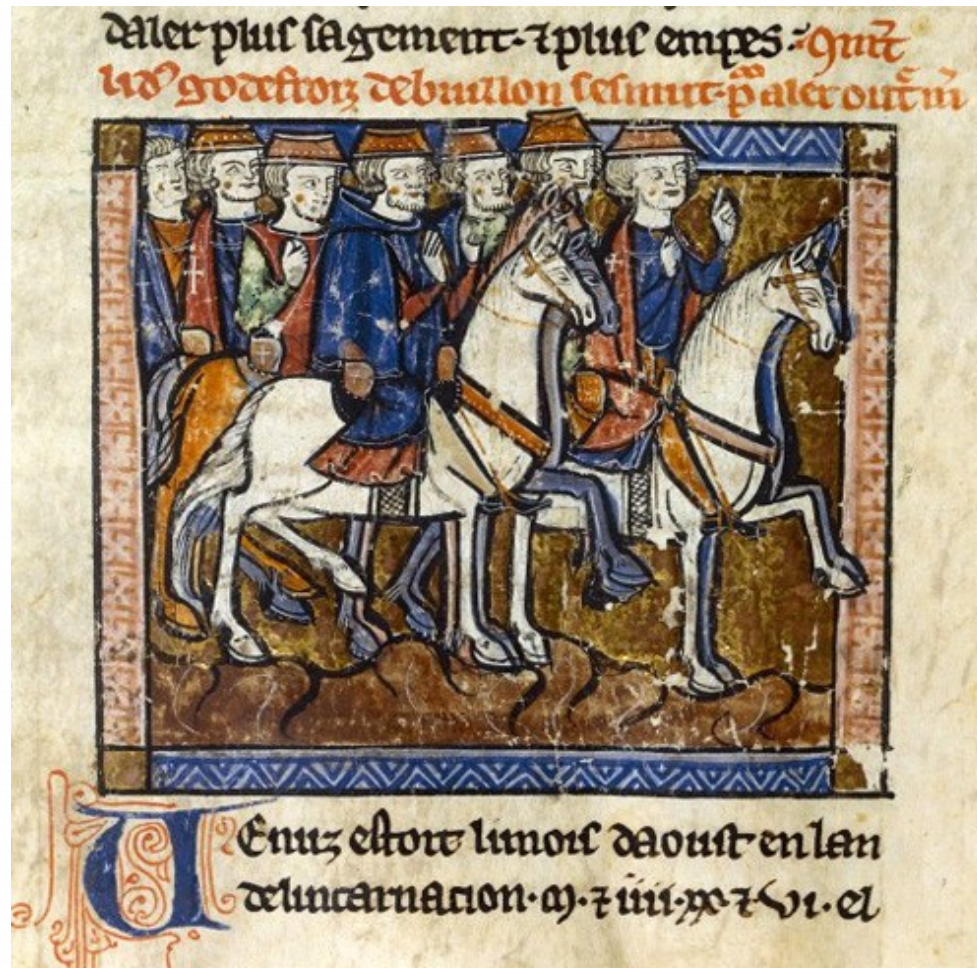 daler plus sagement · ⁊ plus empes : Qn̄t
li dꝰ godefroiz de buillon sesmut pͦ aler out̃ m̃
Uenuz estoit li mois daoust en lan
delincarnacion · m · ⁊ iiii · xx · ⁊ vi · el